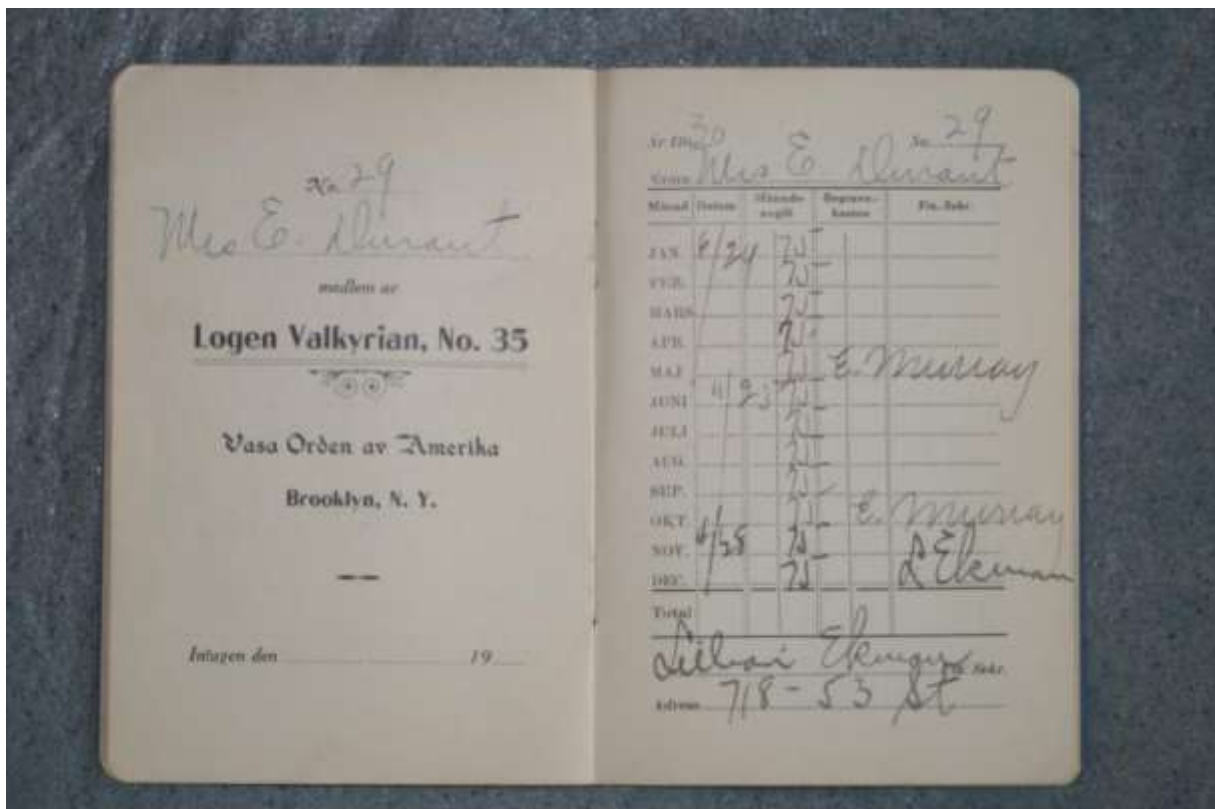 No. 29
Mrs E. Durant
medlem av
Logen Valkyrian, No. 35
Vasa Orden av Amerika
Brooklyn, N. Y.
Intagen den 19
30 No. 29
Namn Mrs E. Durant
Månad Datum Månads-avgift Fin.-Sekr.
JAN. 6/24 75
FEB. 75
MARS 75
APR. 75
MAJ 75 E. Murray
JUNI 75
JULI 75
AUG. 75
SEP. 75
OKT. 75 E. Murray
NOV. 75 L Ekman
DEC. 75
Total
Ekman Fin. Sekr.
Adress 718-53 St